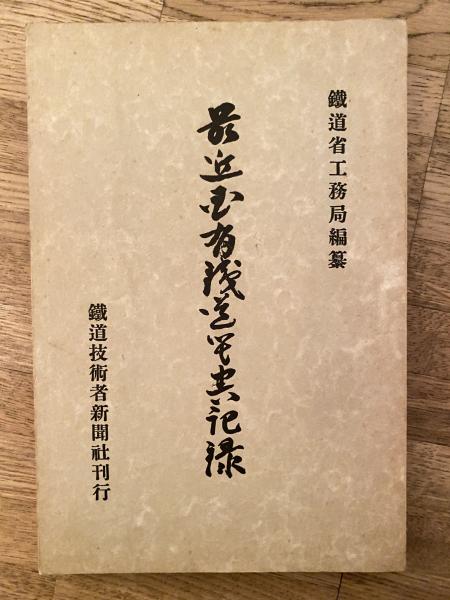 鐵道省工務局編纂
最近国有鐵道災害記録
鐵道技術者新聞社刊行